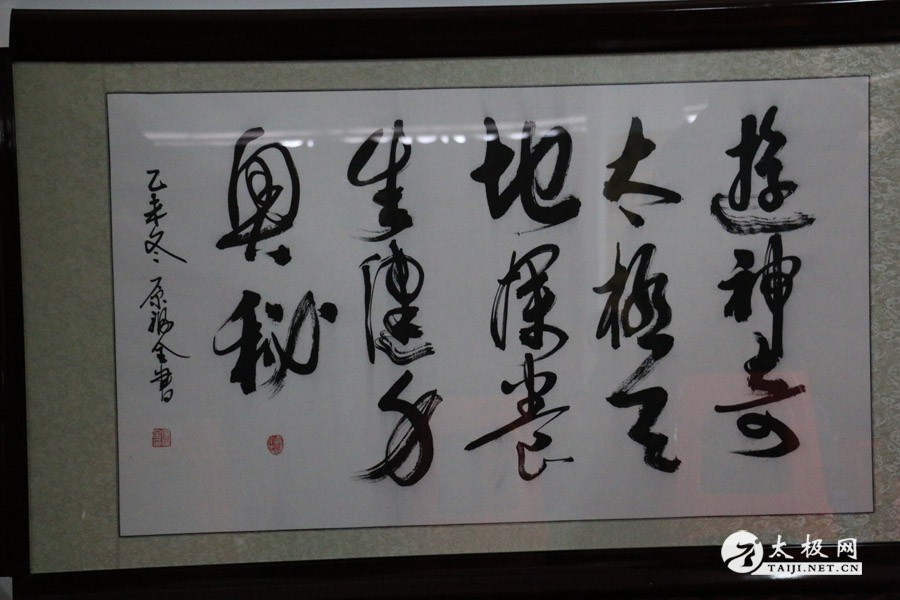 遊神奇
太極天
地探養
生健身
奥秘
乙未冬 原福全書
太极网
TAIJI.NET.CN